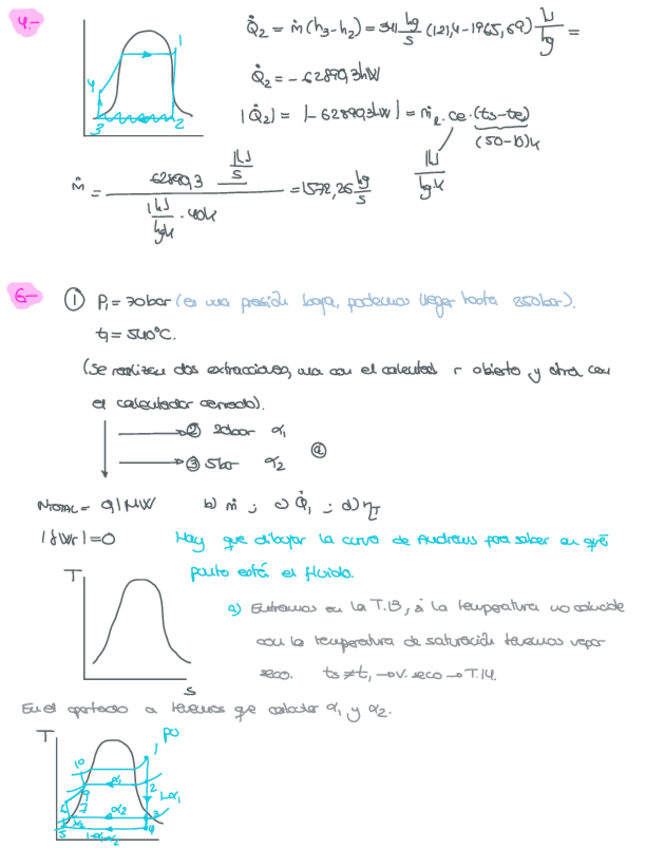 4.-
Q̇₂ = ṁ(h₃-h₂) = 34,1 kg/s (121,4-1965,69) kJ/kg =
Q̇₂ = -62890,3kW
|Q̇₂| = |-62890,3kW| = ṁᵣ · ce · (ts-te)
(50-10)K
kJ/kgK
ṁ = 62890,3 kJ/s / 1 kJ/kgK · 40K = 1572,26 kg/s
1
4
3
2
6-
① P₁ = 70bar (es una presión baja, podemos llegar hasta 350bar).
t₁ = 540°C.
(Se realizan dos extracciones, una con el calentador abierto y otra con
el calentador cerrado).
② 20bar α₁
③ 5bar α₂
ⓐ
NTOTAL = 91MW b) ṁ ; c) Q̇₁ ; d) ηT
|δWr| = 0 Hay que dibujar la curva de Andrews para saber en qué
punto está el fluido.
T
S
a) Entramos en la T.13, si la temperatura no coincide
con la temperatura de saturación tenemos vapor
seco. ts ≠ t₁ → v. seco → T.14.
En el apartado a tenemos que calcular α₁ y α₂.
T
10
1
α₁
2
1-α₁
α₂
3
4
5
1-α₁-α₂